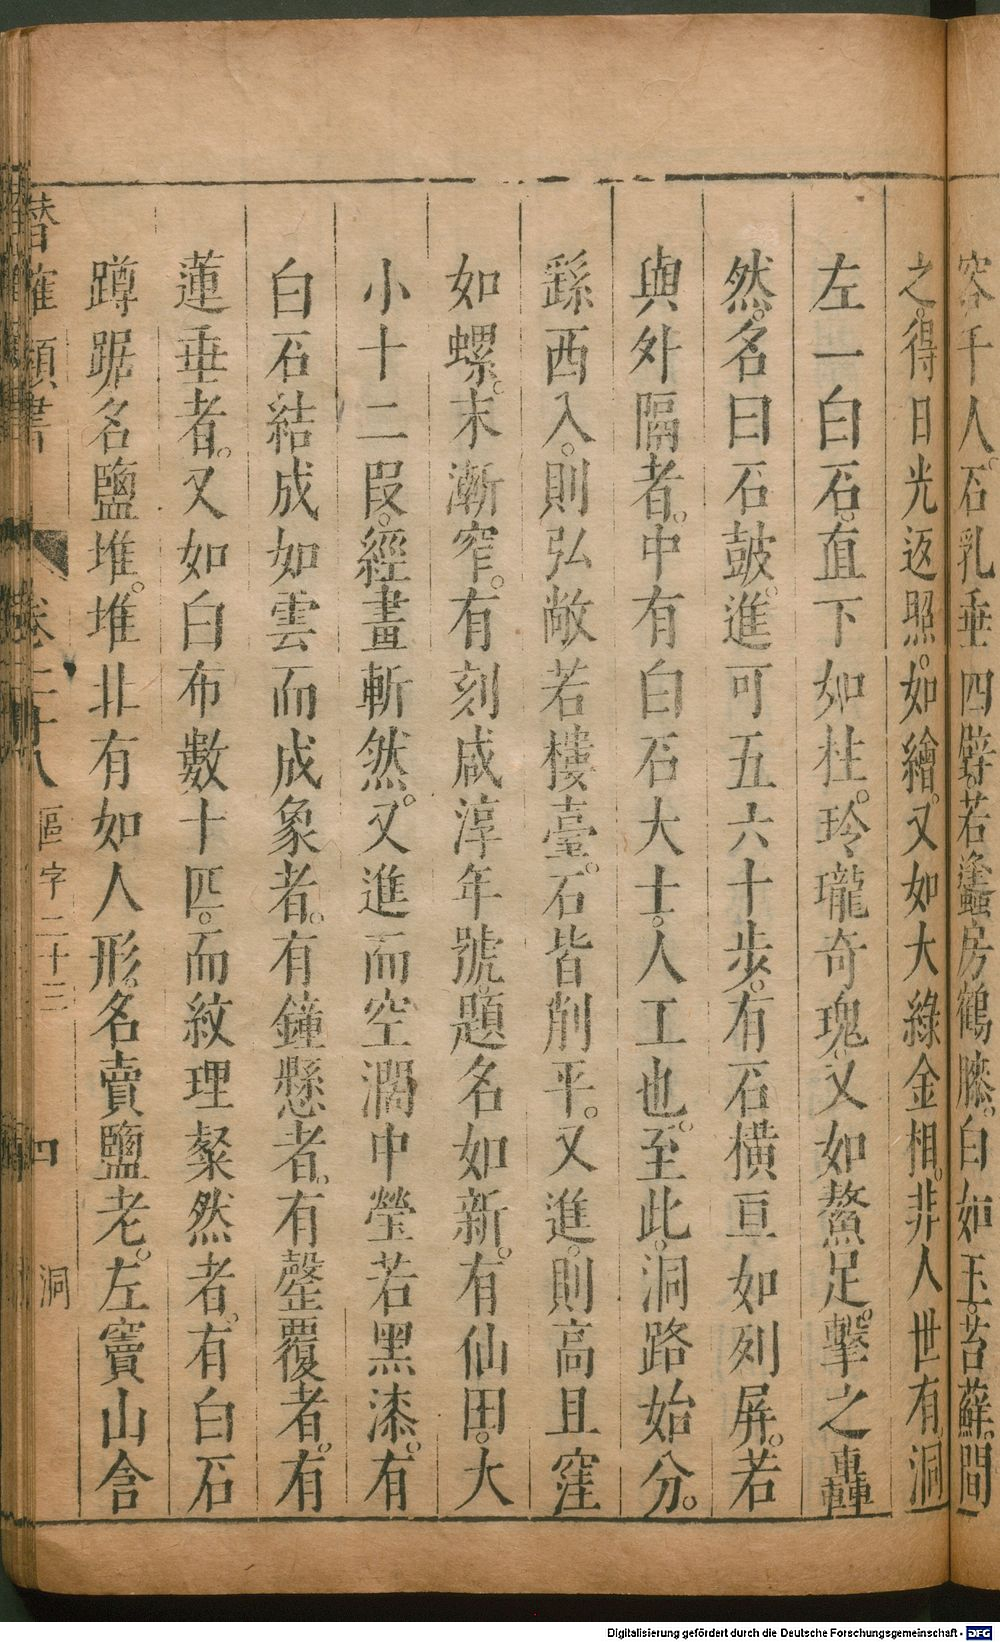 容千人。石乳垂四壁。若蓬蠡房鶴膝。白如玉。苔蘚。間
之。得日光返照。如繪。又如大綠金相。非人世有。洞
左一白石。直下如柱。玲瓏奇瑰。又如鰲足。擊之轟
然。名曰石鼓。進可五六十步。有石橫亘如列屏。若
與外隔者。中有白石大士。人工也。至此。洞路始分。
繇西入。則弘敞若樓臺。石皆削平。又進。則高且窪
如螺。末漸窄。有刻咸淳年號。題名如新。有仙田。大
小十二段。經畫斬然。又進而空濶中瑩若黑漆。有
白石結成如雲而成象者。有鐘懸者。有罄覆者。有
蓮垂者。又如白布數十匹。而紋理粲然者。有白石
蹲踞名鹽堆。堆非有如人形。名賣鹽老。左竇山含
潛確類書 卷二十八 區字二十三 四 洞
Digitalisierung gefördert durch die Deutsche Forschungsgemeinschaft - DFG